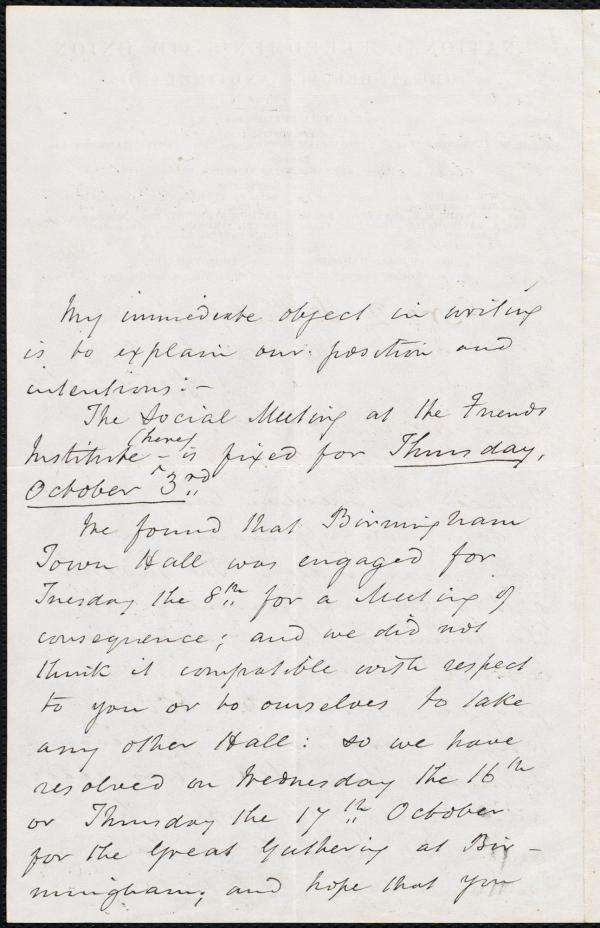 My immediate object in writing
is to explain our position and
intentions:-
The Social Meeting at the Friends
(here)
Institute - is fixed for Thursday,
October 3rd
We found that Birmingham
Town Hall was engaged for
Tuesday the 8th for a Meeting of
consequence; and we did not
think it compatible with respect
to you or to ourselves to take
any other Hall: so we have
resolved on Wednesday the 16th
or Thursday the 17th October
for the Great Gathering at Bir-
mingham; and hope that you